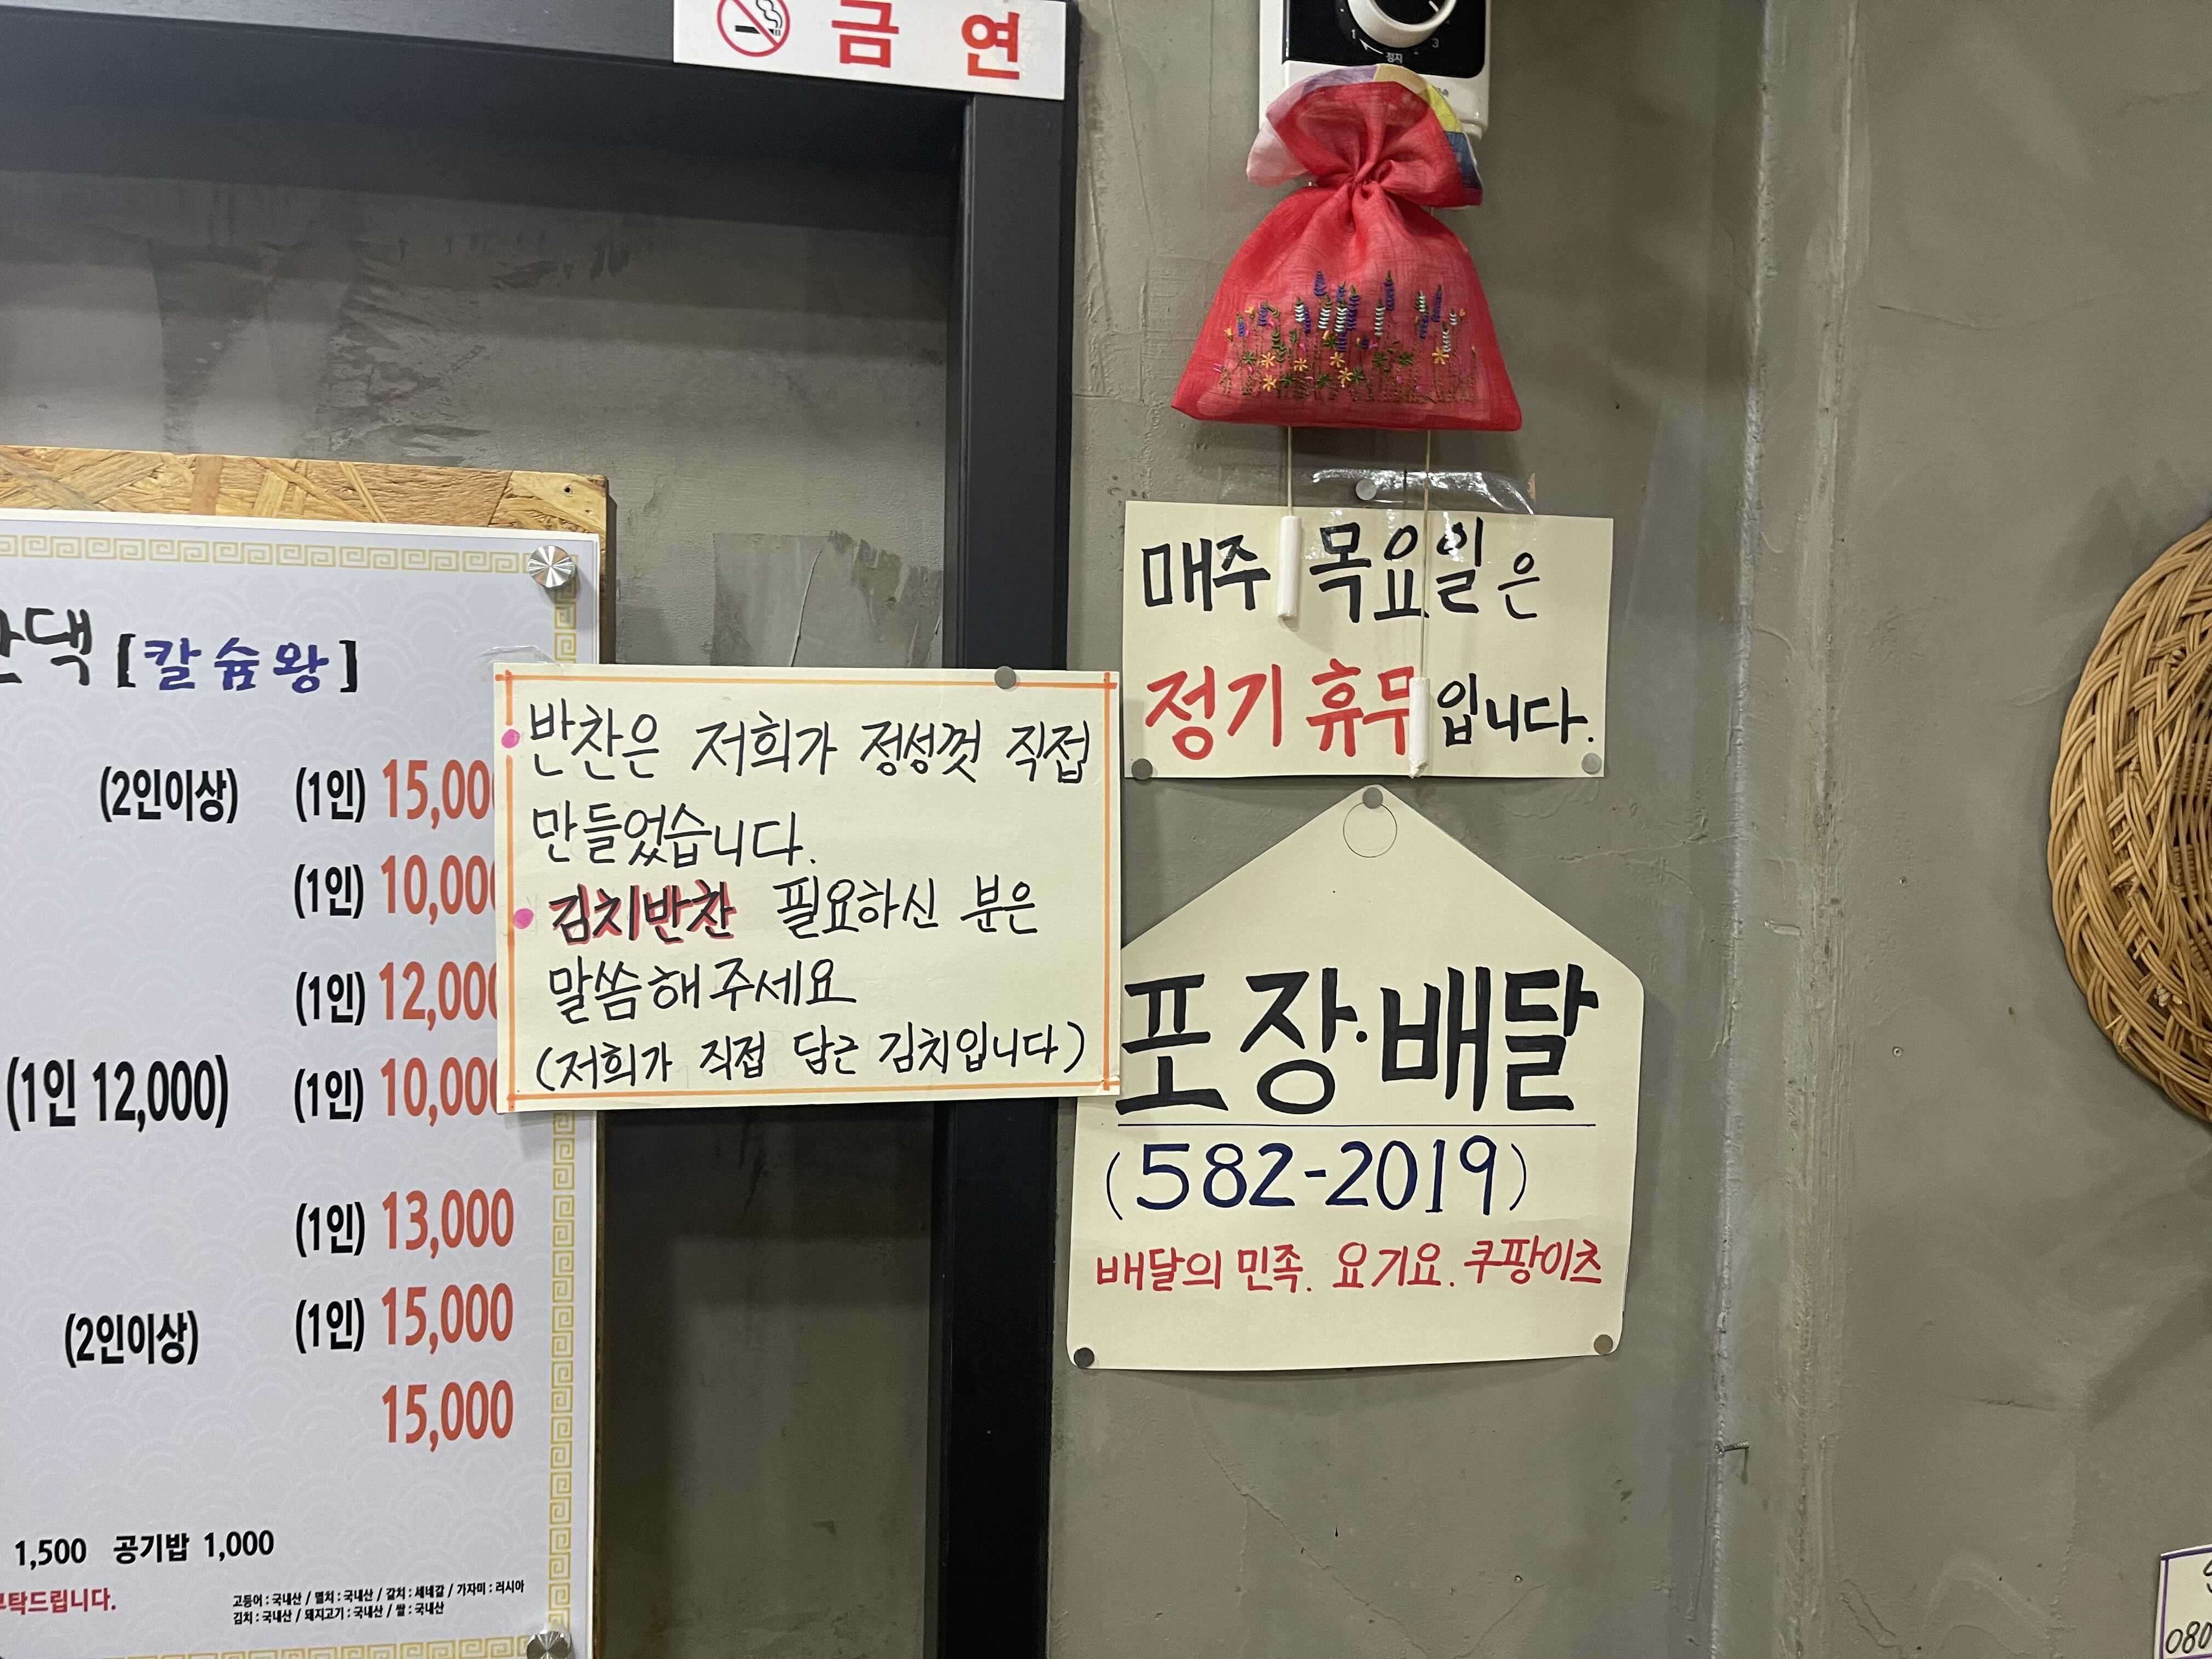 금 연
1 정지 3
[칼슘왕]
(2인이상) (1인) 15,00
(1인) 10,000
(1인) 12,000
(1인 12,000) (1인) 10,000
(1인) 13,000
(2인이상) (1인) 15,000
15,000
1,500 공기밥 1,000
부탁드립니다.
고등어 : 국내산 / 멸치 : 국내산 / 갈치 : 세네갈 / 가자미 : 러시아
김치 : 국내산 / 돼지고기 : 국내산 / 쌀 : 국내산
반찬은 저희가 정성껏 직접
만들었습니다.
김치반찬 필요하신 분은
말씀해주세요
(저희가 직접 담근 김치입니다)
매주 목요일은
정기 휴무입니다.
포장·배달
(582-2019)
배달의 민족. 요기요. 쿠팡이츠
080